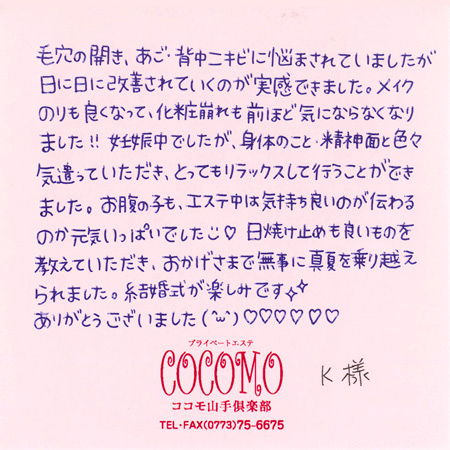 毛穴の開き、あご・背中ニキビに悩まされていましたが
日に日に改善されていくのが実感できました。メイク
のりも良くなって、化粧崩れも前ほど気にならなくなり
ました!! 妊娠中でしたが、身体のこと・精神面と色々
気遣っていただき、とってもリラックスして行うことができ
ました。お腹の子も、エステ中は気持ち良いのが伝わる
のか元気いっぱいでした☺♡ 日焼け止めも良いものを
教えていただき、おかげさまで無事に真夏を乗り越え
られました。結婚式が楽しみです✧✧
ありがとうございました(^ω^)♡♡♡♡♡♡
プライベートエステ
COCOMO
K様
ココモ山手倶楽部
TEL・FAX(0773)75-6675